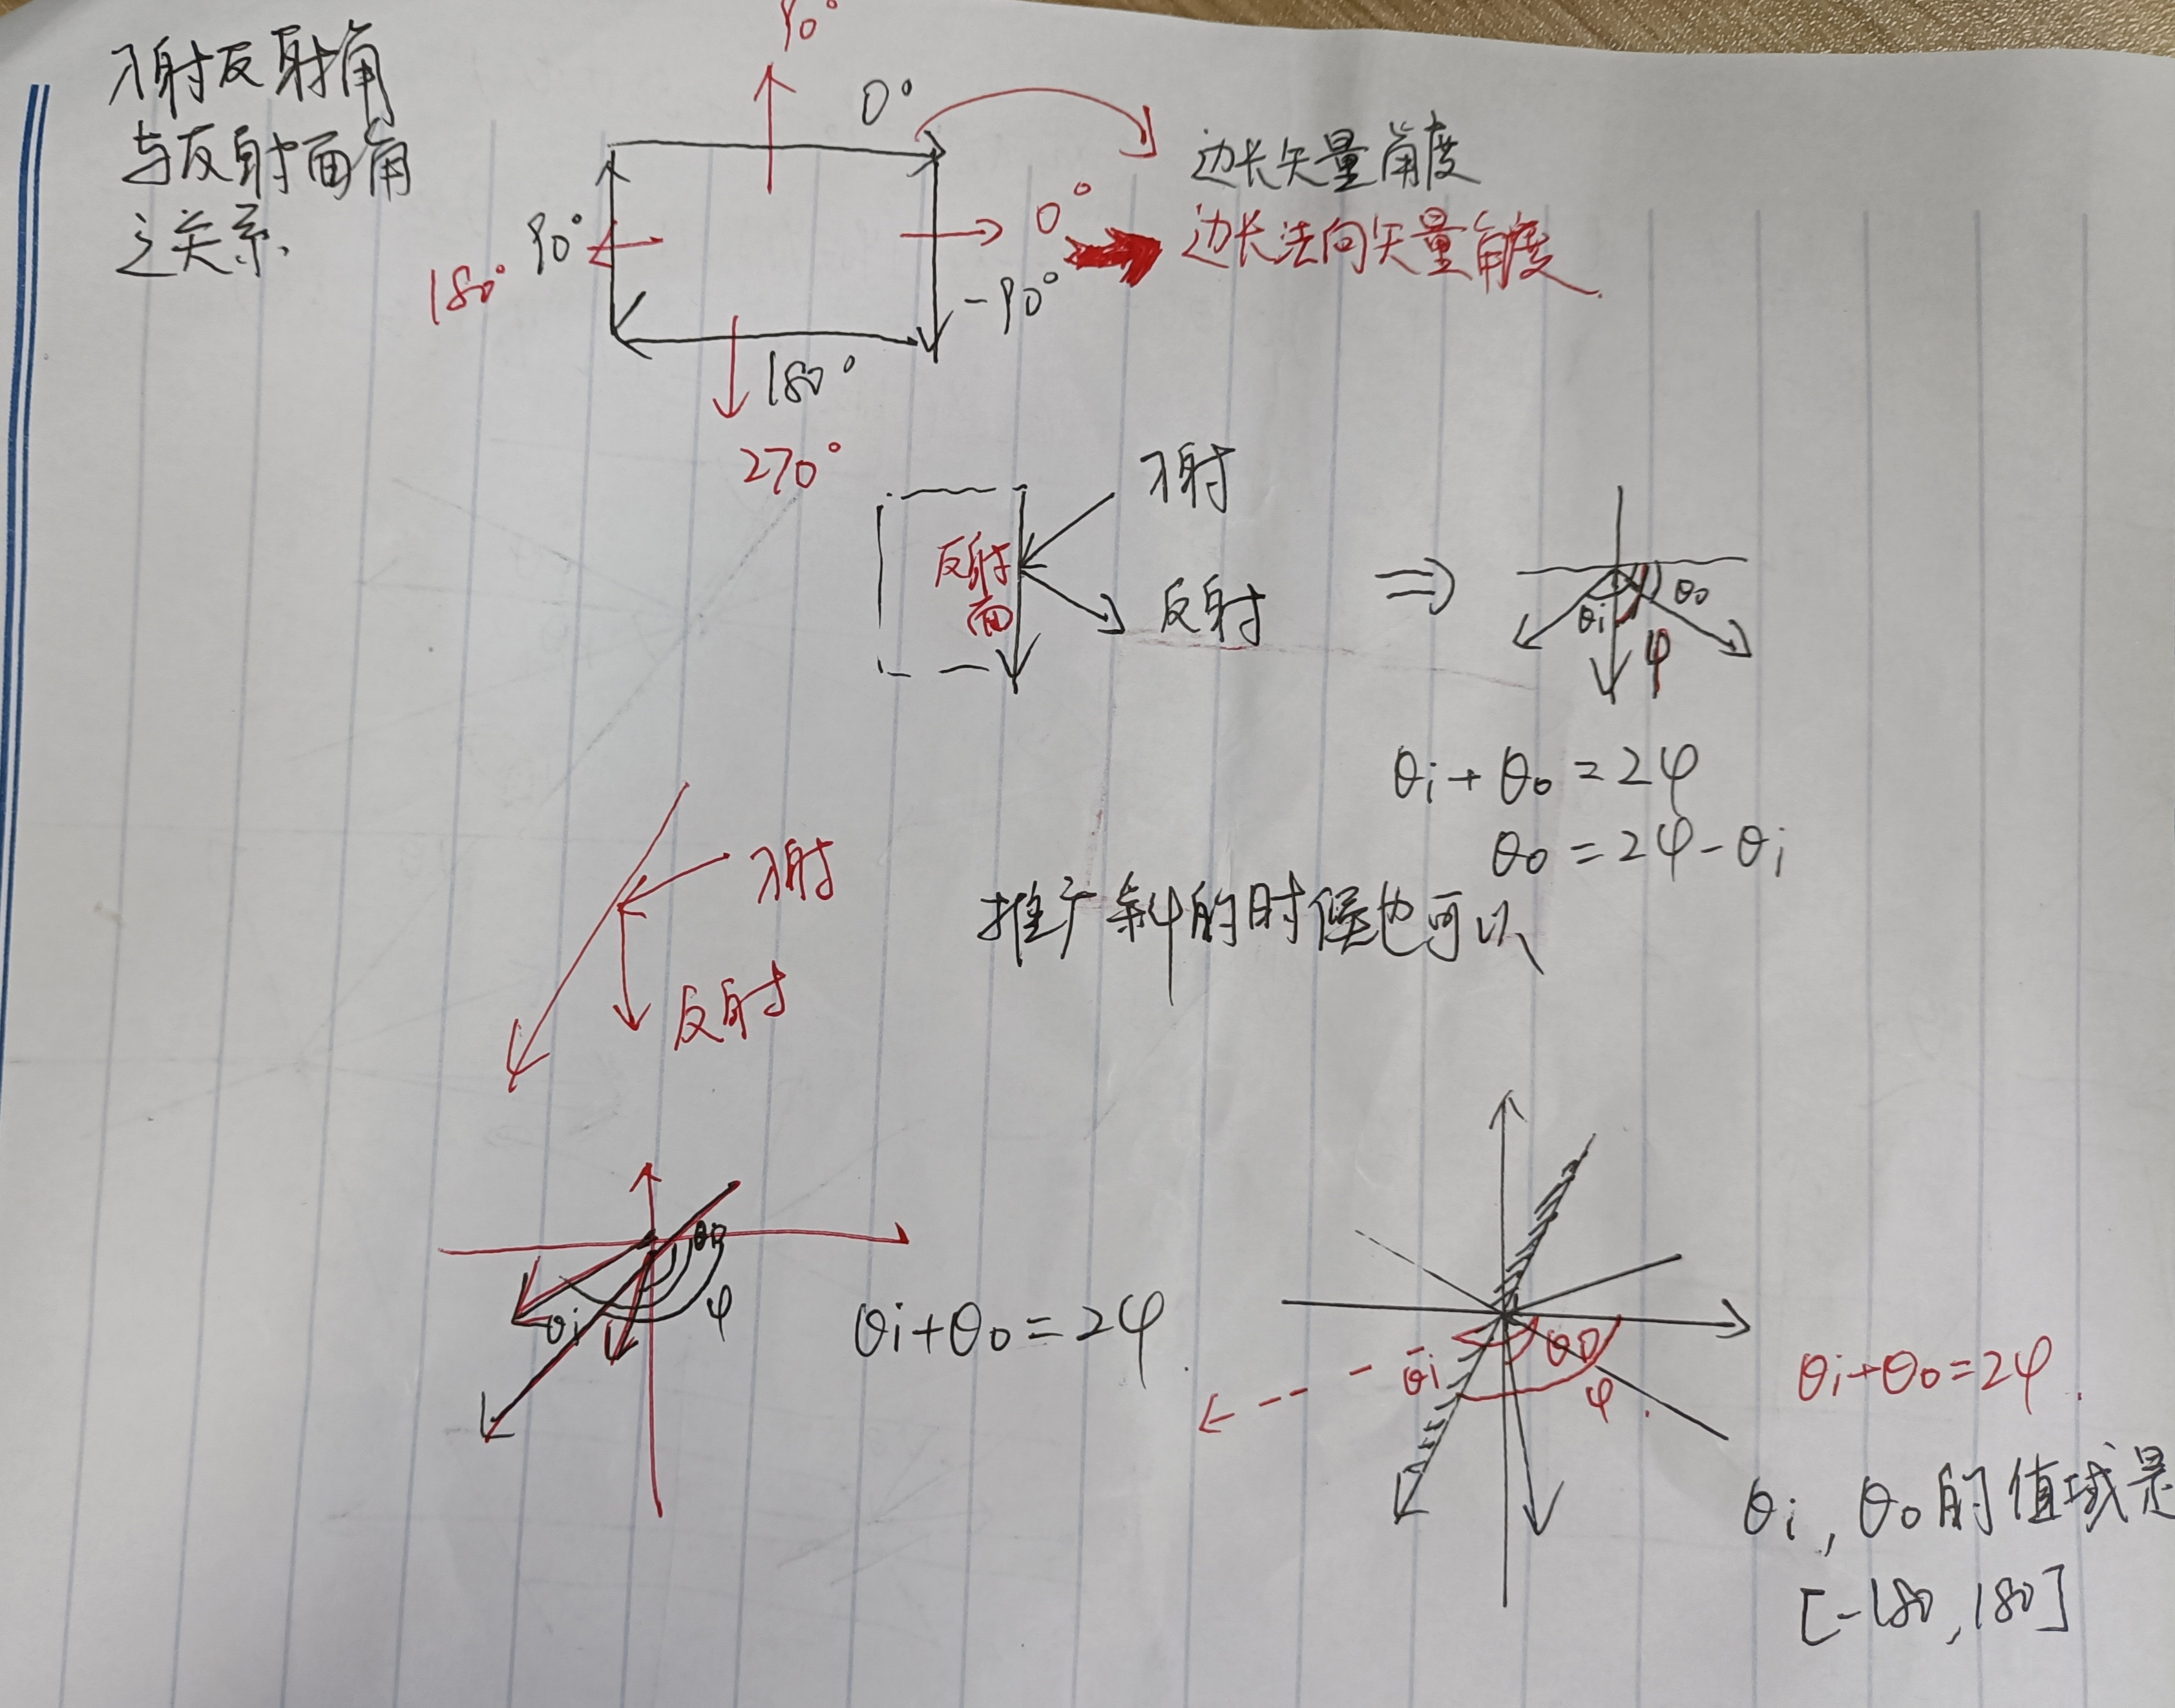 入射反射角
与反射面角
之关系
90°
0°
边长矢量角度
0°
边长法向矢量角度
90°
180°
-90°
180°
270°
入射
反射
面
反射
θi
θo
φ
θi + θo = 2φ
θo = 2φ - θi
入射
推广斜的时候也可以
反射
θo
θi
φ
θi+θo=2φ
θi
θo
φ
θi+θo=2φ.
θi, θo的值域是
[-180, 180]